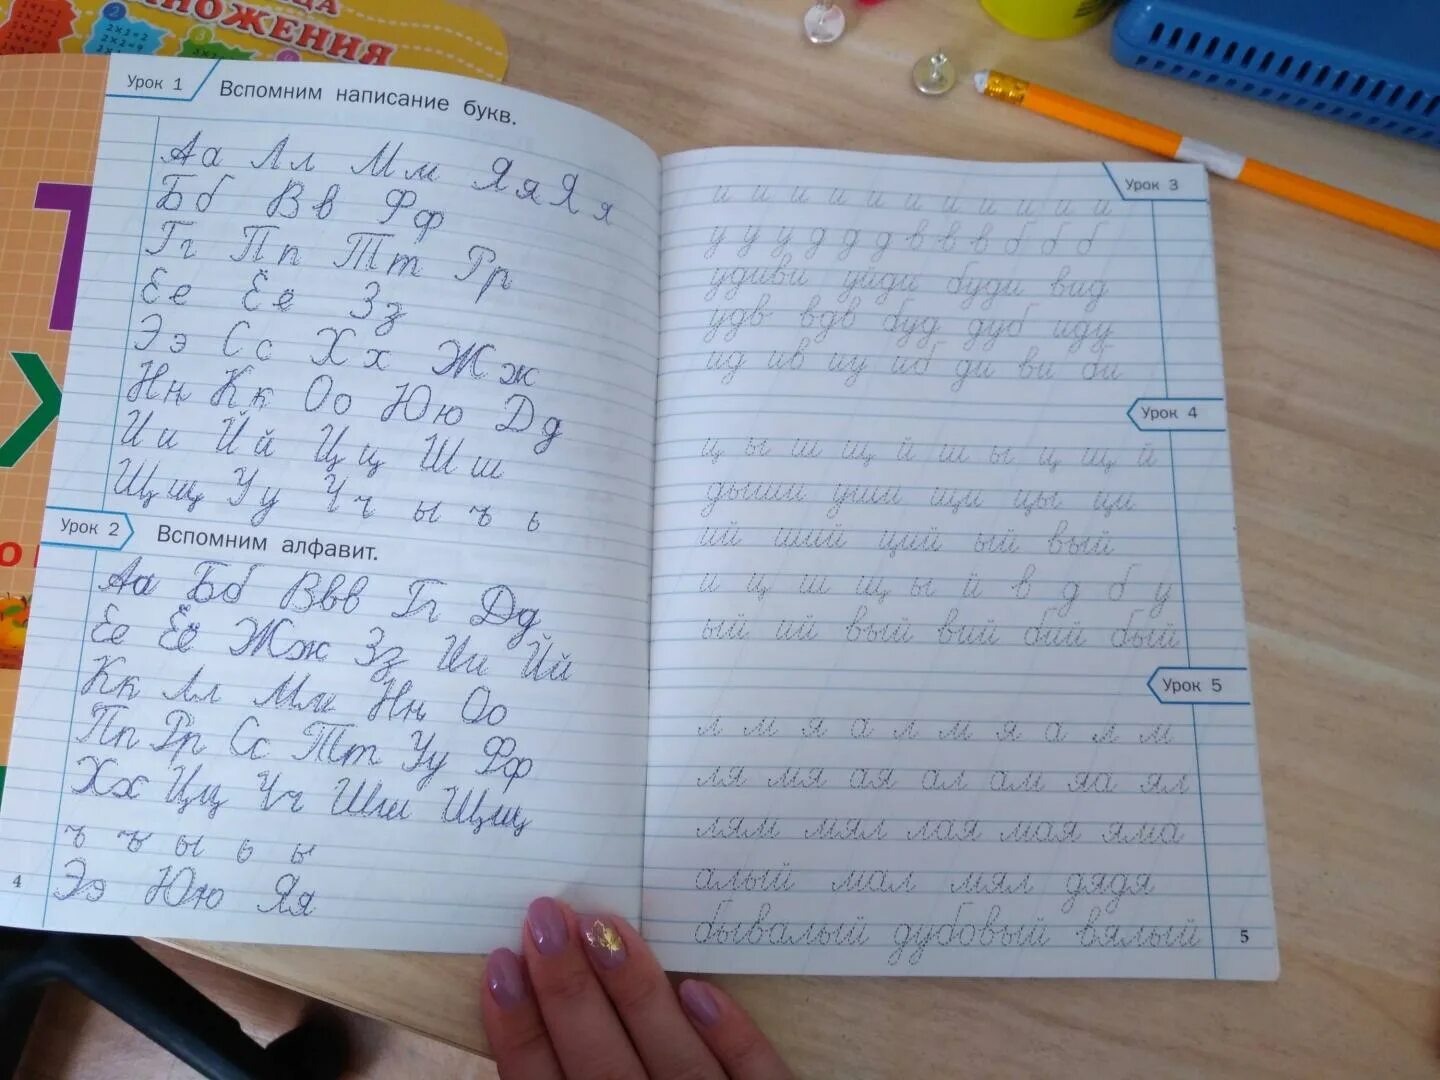 НОЖЕНИЯ
Урок 1
Вспомним написание букв.
Аа Лл Мм Яя Яя
Бб Вв Фф
Гг Пп Тт Рр
Ее Ёё Зз
Ээ Сс Хх Жж
Нн Кк Оо Юю Дд
Ии Йй Цц Шш
Щщ Уу Чч ы ъ ь
Урок 2
Вспомним алфавит.
Аа Бб Ввв Гг Дд
Ее Ёё Жж Зз Ии Йй
Кк Лл Мм Нн Оо
Пп Рр Сс Тт Уу Фф
Хх Цц Чч Шш Щщ
ъ ъ ы ь ы
Ээ Юю Яя
4
Урок 3
и и и и и и и и и и и
у у у д д д в в в б б б
удиви уйди буди вид
удв вдв буд дуб иду
ид ив иу иб ди ви би
Урок 4
ц ы ш щ й ш ы ц щ й
дыши уши щи цы ци
ий ший щий ый вый
и ц ш щ ы й в д б у
ый ий вый вий бий бый
Урок 5
л м я а л м я а л м
ля мя ая ал ам яа ял
лям мял лая мая яма
алый мал мял дядя
бывалый дубовый вялый
5